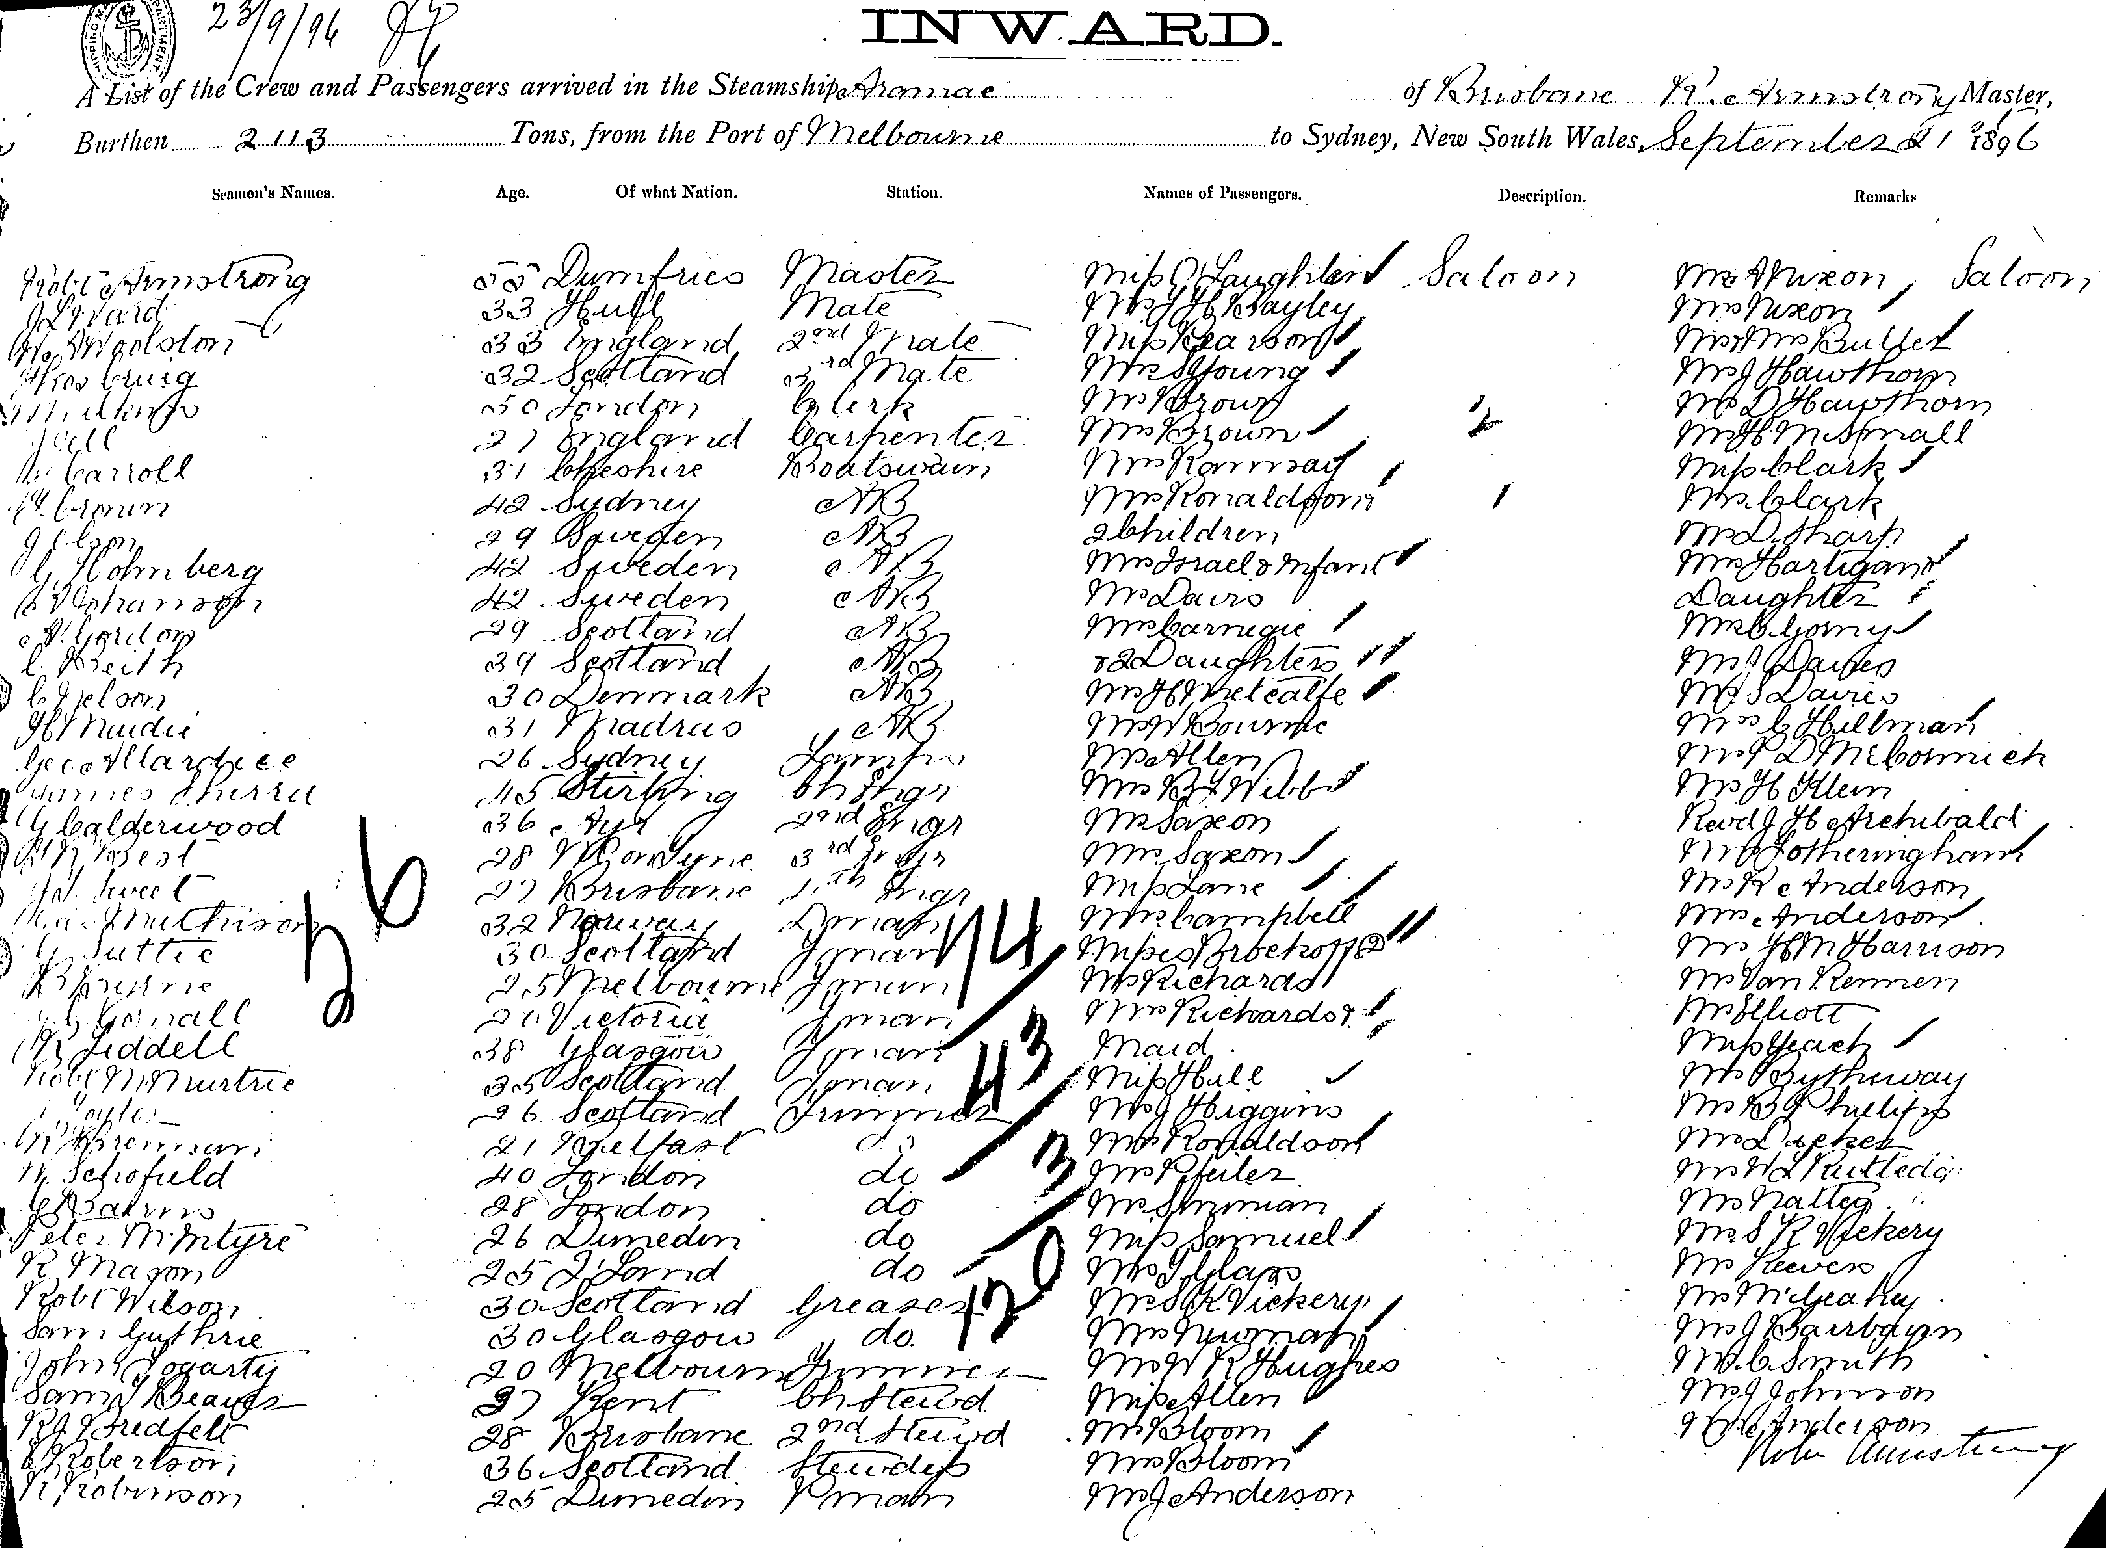 23/9/96
INWARD.
A List of the Crew and Passengers arrived in the Steamship Aramac of Brisbane R. Armstrong Master,
Burthen 2113 Tons, from the Port of Melbourne to Sydney, New South Wales, September 21 1896
Seamen's Names. Age. Of what Nation. Station. Names of Passengers. Description. Remarks
Robt Armstrong 55 Dumfries Master Miss O'Laughlin Saloon Mr A Nixon Saloon
J Ward 33 Hull Mate Mr J H Bayley Mrs Nixon
Woolston 33 England 2nd Mate Miss Pearson Mr & Mrs Butler
32 Scotland 3rd Mate Mrs S Young Mr J Hawthorn
50 London Clerk Mr Brown Mr D Hawthorn
27 England Carpenter Mrs Brown 2 Mr H M Small
Carroll 31 Cheshire Boatswain Mrs Ramsay Miss Clark
42 Sydney AB Mrs Ronaldson 1 Mr Clark
29 Sweden AB 2 Children Mr D Sharp
G Holmberg 42 Sweden AB Mrs Israel & Infant Mrs Hartigan &
Johanson 42 Sweden AB Mr Davis Daughter
A Gordon 29 Scotland AB Mrs Carnegie Mrs C Gorny
C Keith 39 Scotland AB & 2 Daughters Mr J Davies
C Nelson 30 Denmark AB Mrs H Metcalfe Mr S Davies
H Mudie 31 Madras AB Mr W Bourne Mrs C Hillman
Geo Allardice 26 Sydney Lamps Mr Allen Mr P D McCormick
James 45 Stirling Ch Engr Mrs B Y Webb Mr H Klein
G Calderwood 36 Ayr 2nd Engr Mr Saxon Revd J H Archibald
West 28 3rd Engr Mrs Saxon Fotheringham
Sweet 27 Brisbane 4th Engr Miss Lane Mr R Anderson
Muthison 32 Norway Dman Mrs Campbell Mrs Anderson
G Suttie 30 Scotland Fman 114 Misses Brockoff (2) Mr H M Harrison
25 Melbourne Fman Mr Richards Mr Van Rennen
Gornall 20 Victoria Fman Mrs Richards & Mr Elliott
26
Liddell 38 Glasgow Fman 43 Maid Miss Geach
Robt McMurtrie 35 Scotland Fman Miss Hill Mr Bytheway
26 Scotland Trimmer Mr J Higgins Mr B J Phillips
21 Belfast do Mrs Ronaldson
W Schofield 40 London do 3 Mr Pfeiler
28 London do Mr Simmian Mr Natteg
Peter McIntyre 26 Dunedin do Miss Samuel Mr S R Vickery
R Mason 25 Z'Land do Mr J Glass
Robt Wilson 30 Scotland Greaser 120 Mr S K Vickery Mr McGeahy
Sam Guthrie 30 Glasgow do Mrs Newman Mr J Bairbairn
John Fogarty 20 Melbourne Trimmer Mr W R Hughes Mr C Smith
Saml Beaves 37 Kent Ch Stewd Miss Allen Mr J Johnson
R J Bredfelt 28 Brisbane 2nd Stewd Mr Bloom Anderson
C Robertson 36 Scotland Stewdess Mrs Bloom Robt Armstrong
R Robinson 25 Dunedin Pman Mr J Anderson